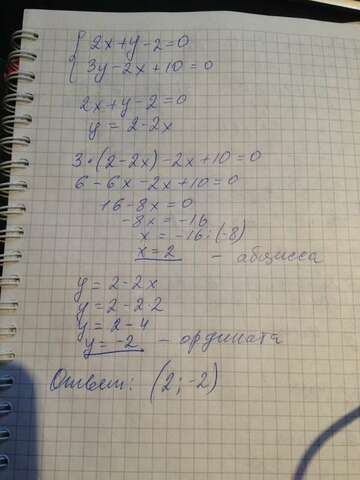 2x+y-2=0
3y-2x+10=0
2x+y-2=0
y=2-2x
3•(2-2x)-2x+10=0
6-6x-2x+10=0
16-8x=0
-8x=-16
x=-16:(-8)
x=2 - абцисса
y=2-2x
y=2-2·2
y=2-4
y=-2 - ордината
Ответ: (2;-2)